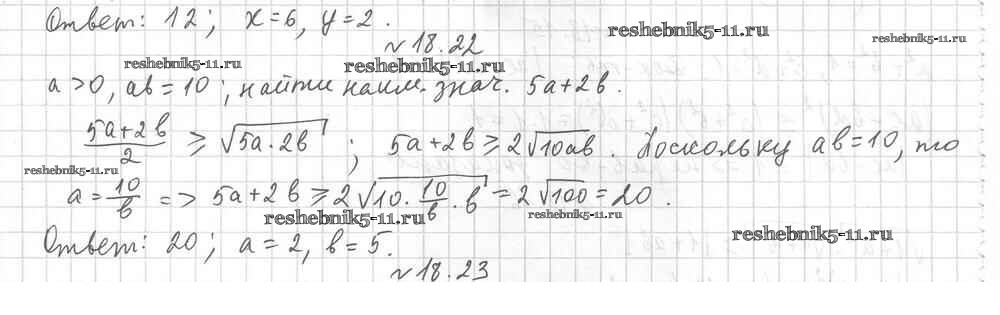 Ответ: 12; x=6, y=2.
reshebnik5-11.ru
reshebnik5-11.ru
№18.22
reshebnik5-11.ru
reshebnik5-11.ru
a>0, ab=10; найти наим. знач. 5a+2b.
(5a+2b)/2 ≥ √(5a·2b); 5a+2b ≥ 2√(10ab). Поскольку ab=10, то
reshebnik5-11.ru
a=10/b => 5a+2b ≥ 2√(10·10/b·b) = 2√100 = 20.
reshebnik5-11.ru
reshebnik5-11.ru
reshebnik5-11.ru
Ответ: 20; a=2, b=5.
№18.23